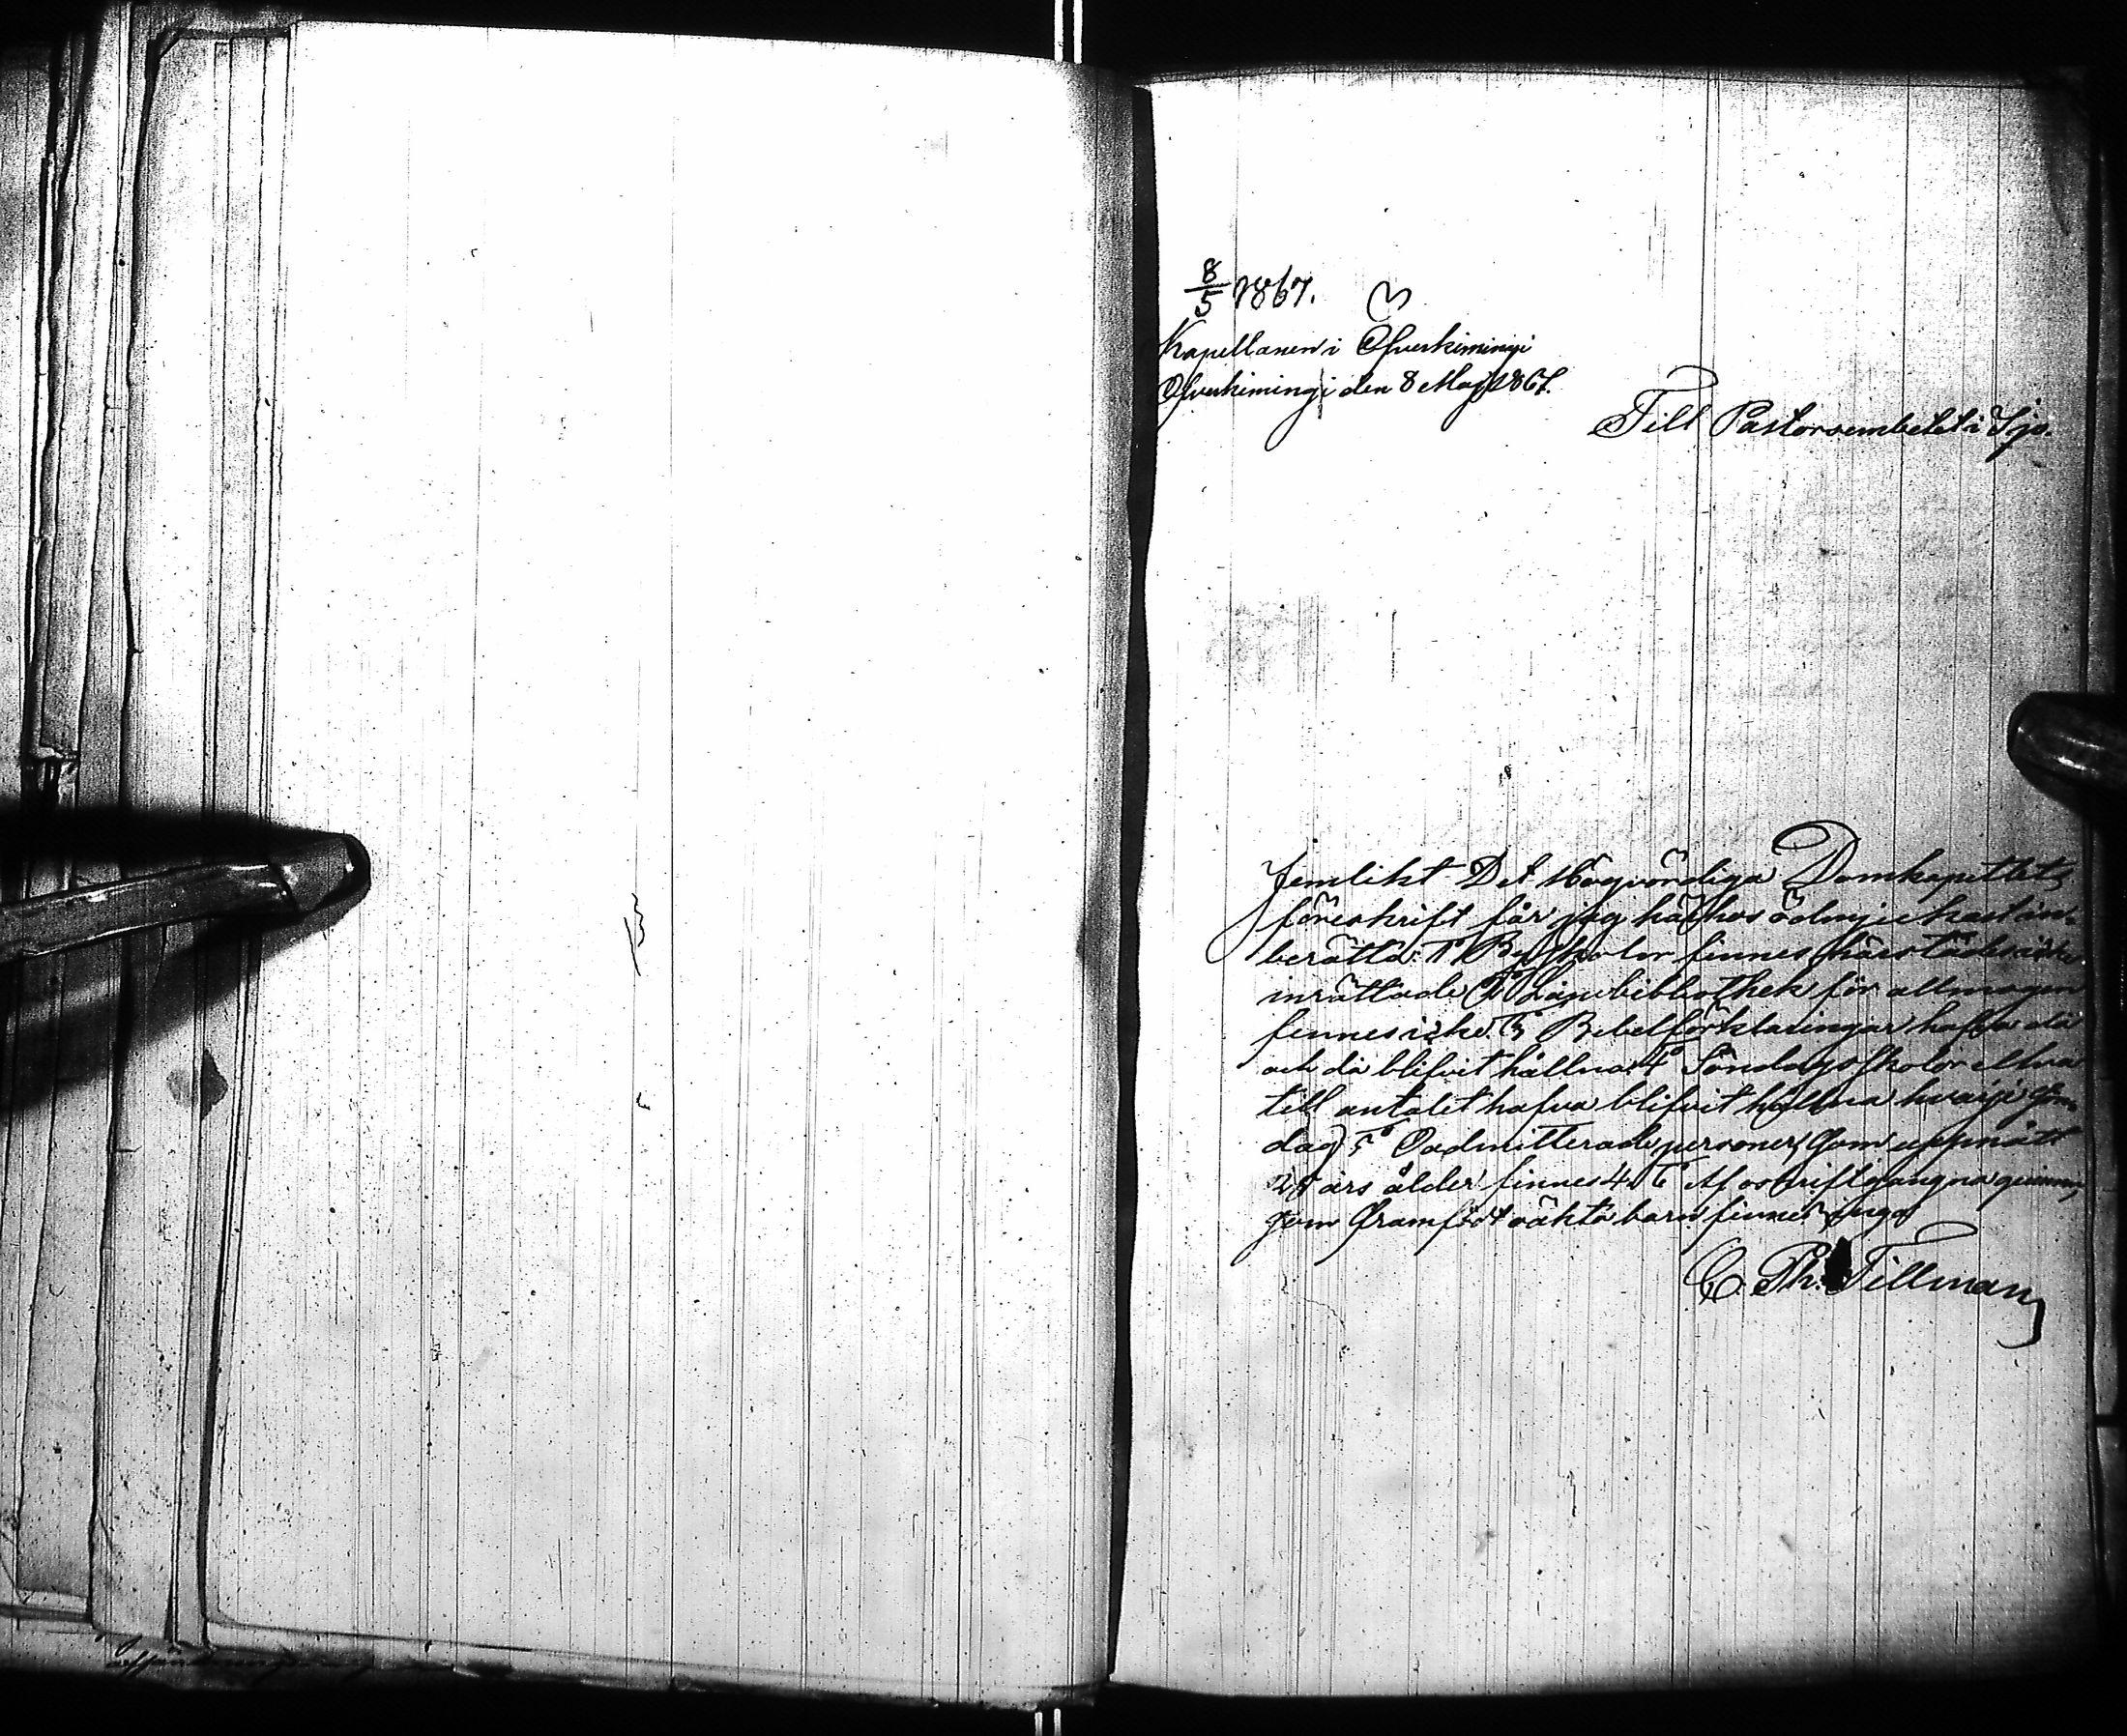 8/5 1867.
Kapellanen i Öfverkimingi
Öfverkimingi den 8 Maj 1867.
Till Pastorsembetet i Ijo.
Jemlikt Det Högvördiga Domkapitlets
föreskrift får jag härhos ödmjukast in-
berätta: 1° Byskolor finnes härstädes icke
inrättade 2° Lånebibliothek för allmogen
finnes icke. 3° Bibelförklaringar hafva då
och då blifvit hållna. 4° Söndagsskolor elfva
till antalet hafva blifvit hållna hvarje Sön-
dag. 5° Oadmitterade personer, som uppnått
20 års ålder finnes 4. 6° Af oskriftgångna qvinnor,
som framfödt oäkta barn finnes inga
C. Th. Tillman